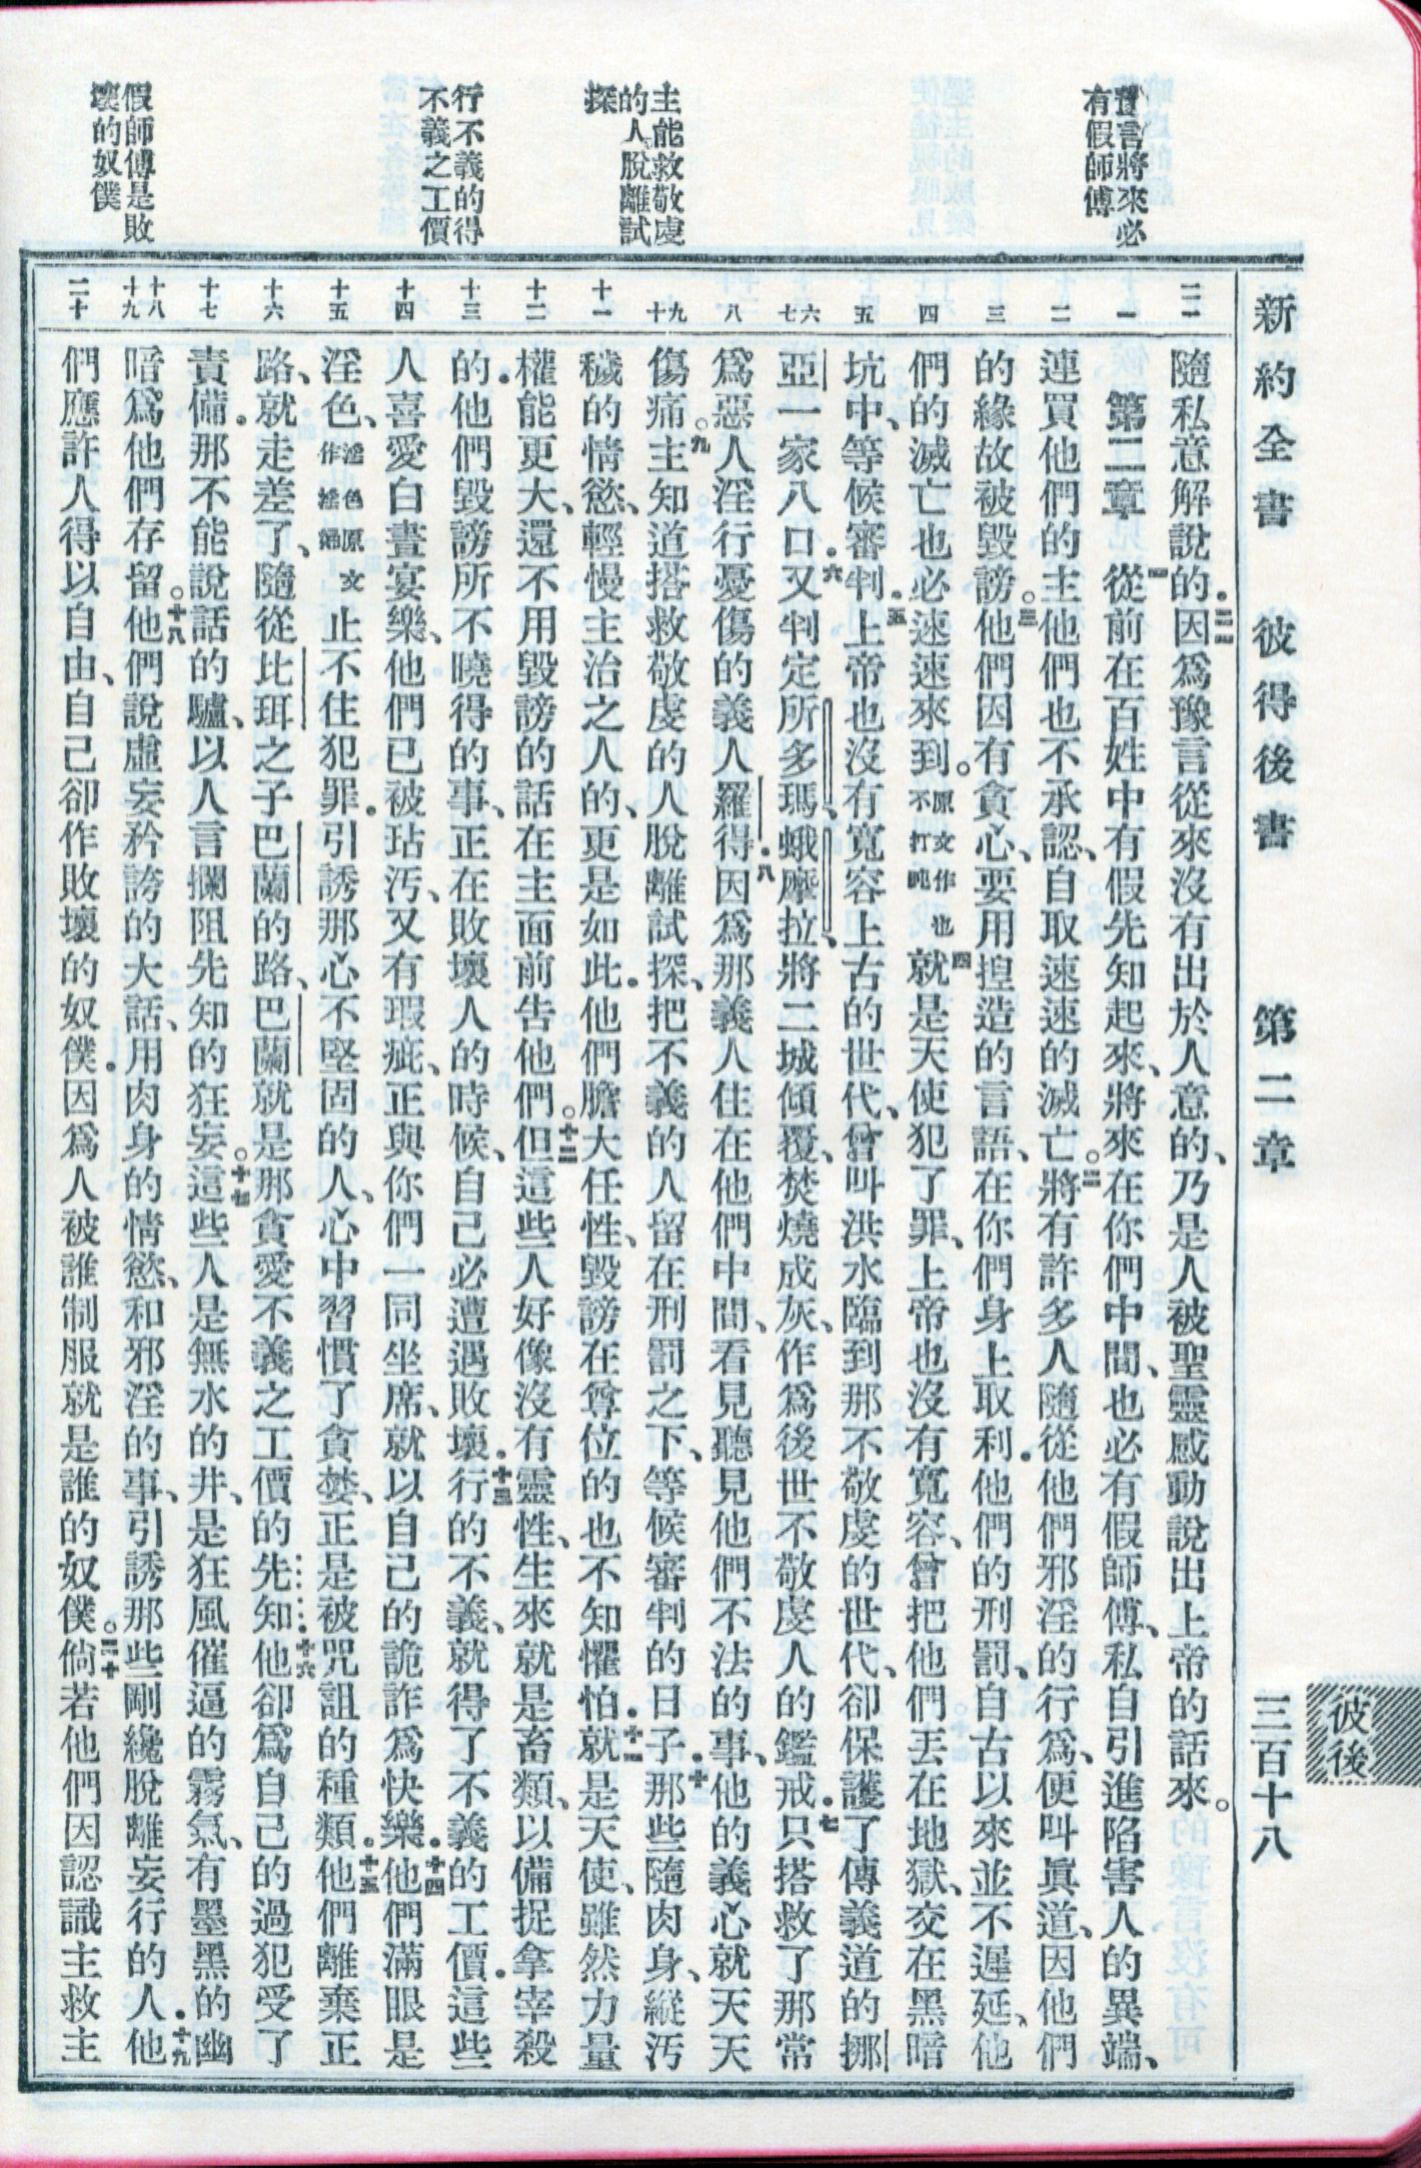 新約全書　彼得後書　第二章　三百十八
彼後
豫言將來必
有假師傅
主能救敬虔
的人脫離試
探
行不義的得
不義之工價
假師傅是敗
壞的奴僕
二一
一
二
三
四
五
六
七
八
九
十
十一
十二
十三
十四
十五
十六
十七
十八
十九
二十
隨私意解說的．二一因爲豫言從來沒有出於人意的、乃是人被聖靈感動說出上帝的話來。
第二章　一從前在百姓中有假先知起來、將來在你們中間、也必有假師傅、私自引進陷害人的異端、
連買他們的主他們也不承認、自取速速的滅亡。二將有許多人隨從他們邪淫的行爲、便叫眞道、因他們
的緣故被毀謗。三他們因有貪心、要用揑造的言語、在你們身上取利．他們的刑罰、自古以來並不遲延、他
們的滅亡也必速速來到。原文作也不打盹四就是天使犯了罪、上帝也沒有寬容、曾把他們丟在地獄、交在黑暗
坑中、等候審判．五上帝也沒有寬容上古的世代、曾叫洪水臨到那不敬虔的世代、卻保護了傳義道的挪
亞一家八口．六又判定所多瑪、蛾摩拉、將二城傾覆、焚燒成灰、作爲後世不敬虔人的鑑戒．七只搭救了那常
爲惡人淫行憂傷的義人羅得．八因爲那義人住在他們中間、看見聽見他們不法的事、他的義心就天天
傷痛。九主知道搭救敬虔的人脫離試探、把不義的人留在刑罰之下、等候審判的日子．十那些隨肉身、縱汚
穢的情慾、輕慢主治之人的、更是如此．他們膽大任性、毀謗在尊位的也不知懼怕．十一就是天使、雖然力量
權能更大、還不用毀謗的話在主面前告他們。十二但這些人好像沒有靈性、生來就是畜類、以備捉拿宰殺
的．他們毀謗所不曉得的事、正在敗壞人的時候、自己必遭遇敗壞．十三行的不義、就得了不義的工價．這些
人喜愛白晝宴樂、他們已被玷汚、又有瑕疵、正與你們一同坐席、就以自己的詭詐爲快樂．十四他們滿眼是
淫色、淫色原文作淫婦止不住犯罪．引誘那心不堅固的人、心中習慣了貪婪、正是被咒詛的種類．十五他們離棄正
路、就走差了、隨從比珥之子巴蘭的路、巴蘭就是那貪愛不義之工價的先知．十六他卻爲自己的過犯受了
責備．那不能說話的驢、以人言攔阻先知的狂妄。十七這些人是無水的井、是狂風催逼的霧氣、有墨黑的幽
暗爲他們存留。十八他們說虛妄矜誇的大話、用肉身的情慾、和邪淫的事、引誘那些剛纔脫離妄行的人．十九他
們應許人得以自由、自己卻作敗壞的奴僕．因爲人被誰制服就是誰的奴僕。二十倘若他們因認識主救主